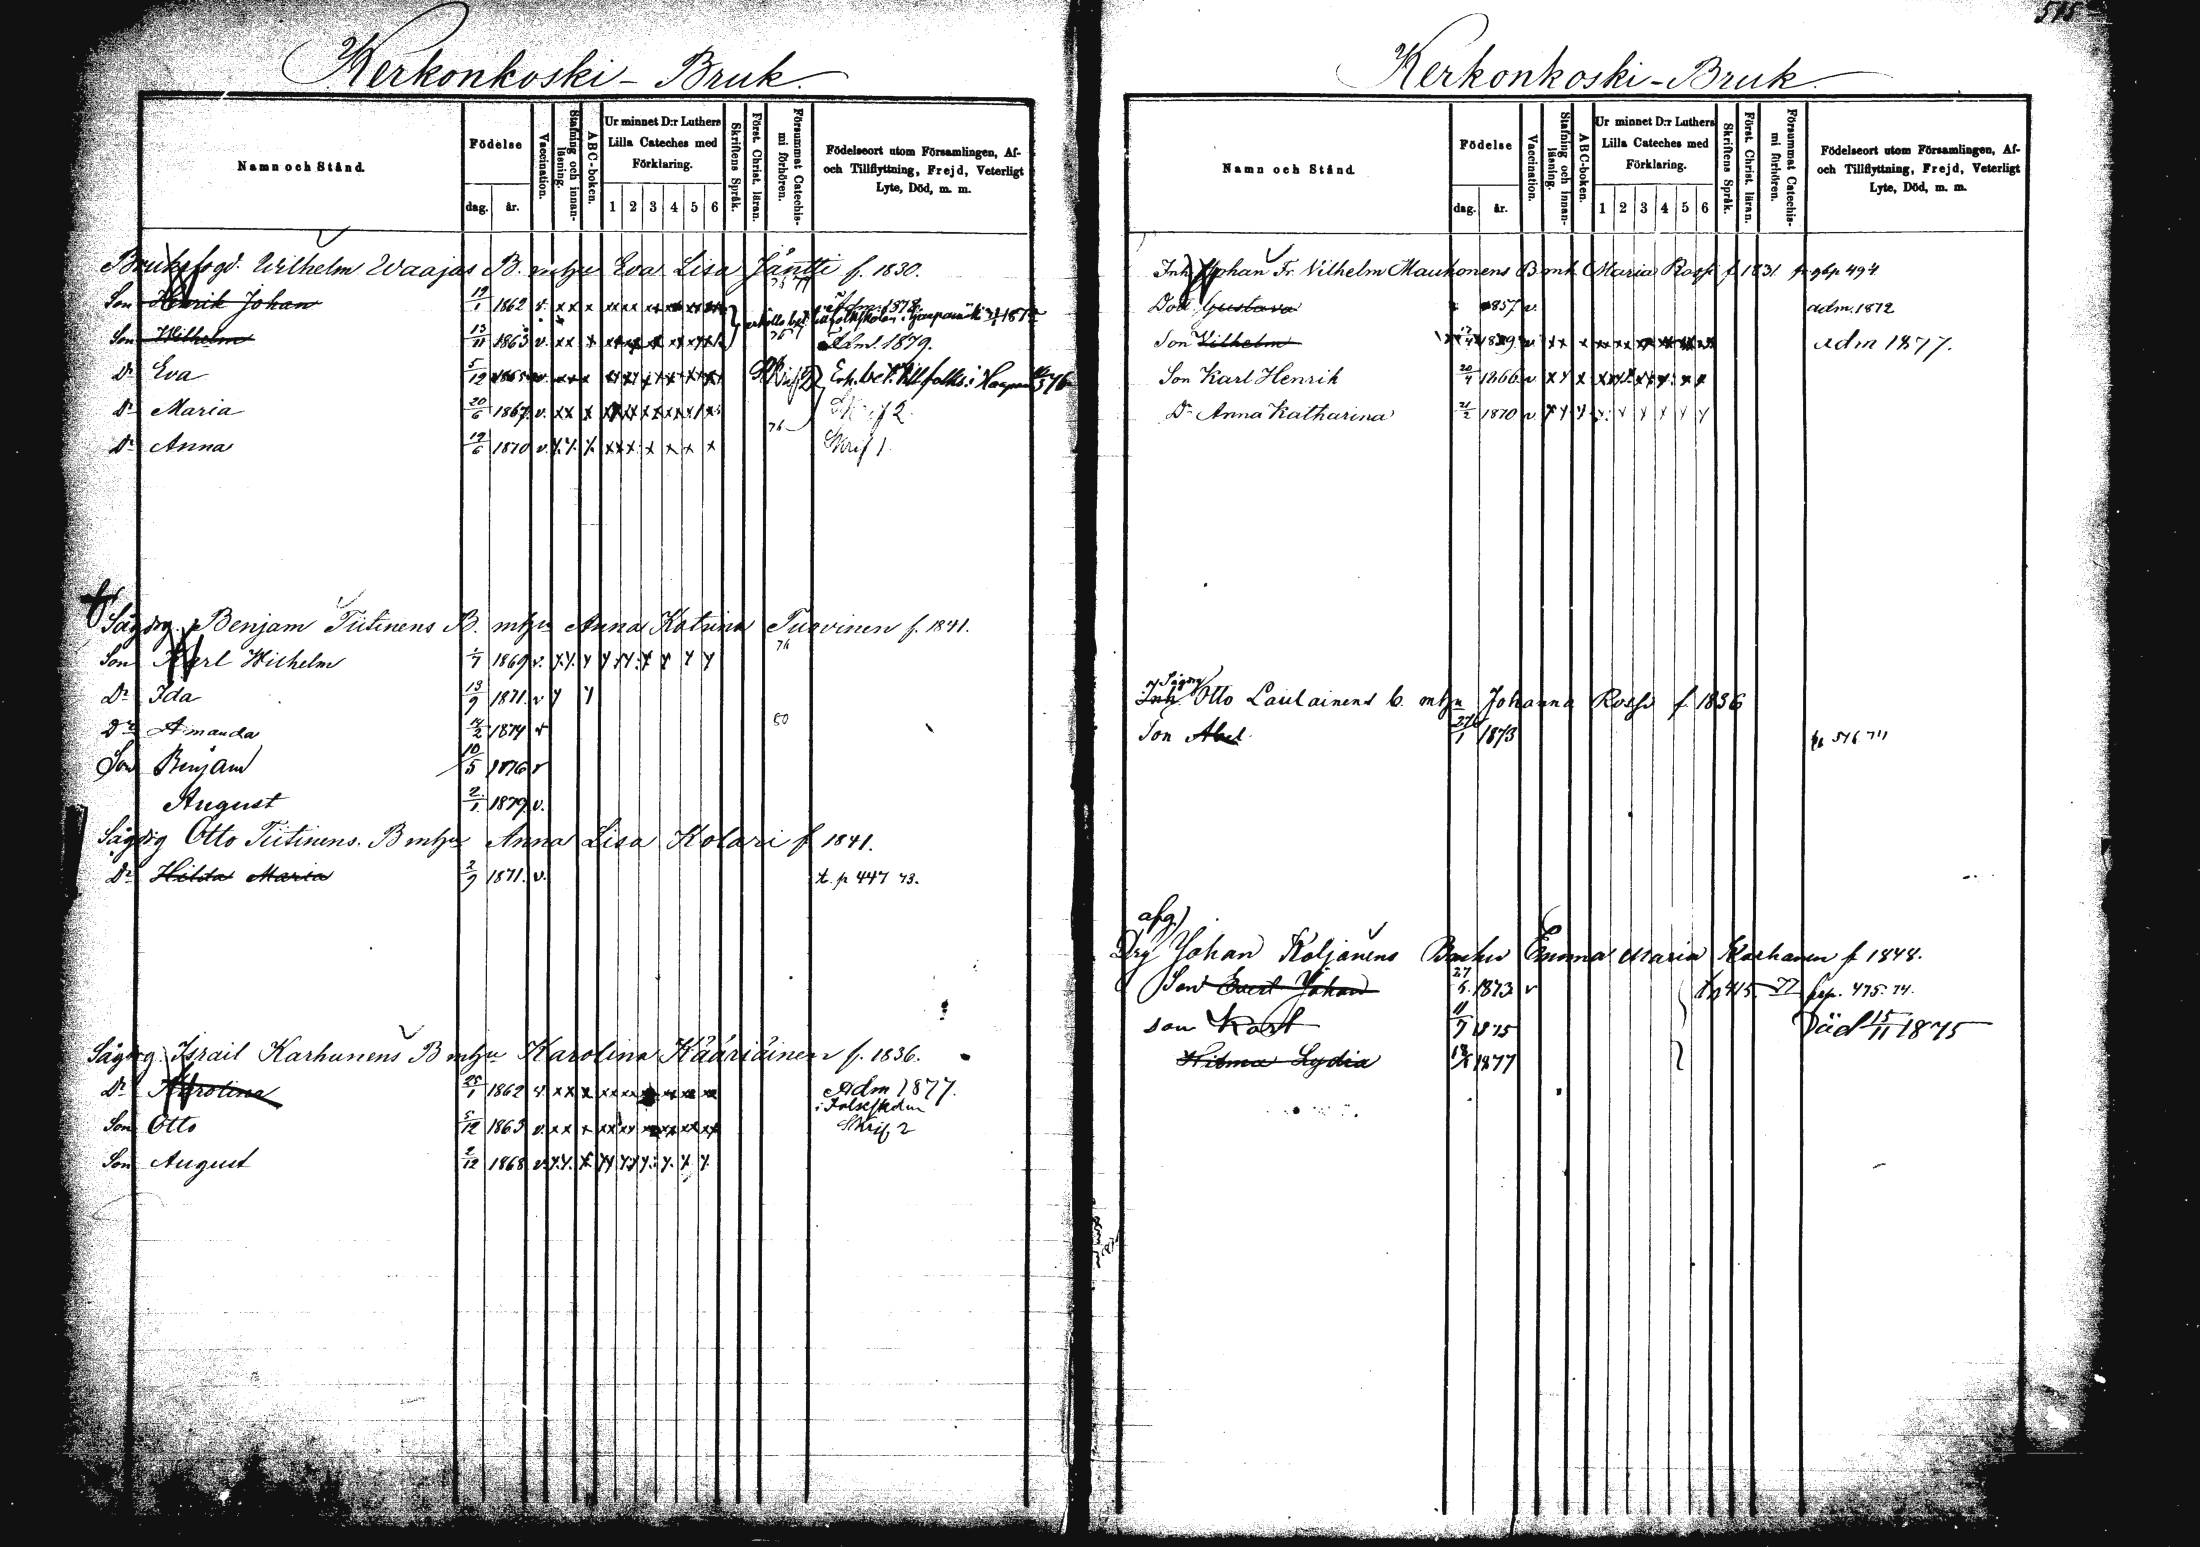 515
Kerkonkoski - Bruk.
Namn och Stånd.
Födelse
dag.
år.
Vaccination.
Stafning och innan-
läsning.
ABC-boken.
Ur minnet D:r Luthers
Lilla Cateches med
Förklaring.
1 2 3 4 5 6
Skriftens Språk.
Först. Christ. läran.
Försummat Catechis-
mi förhören.
Födelseort utom Församlingen, Af-
och Tillflyttning, Frejd, Veterligt
Lyte, Död, m. m.
Bruksfogd. Wilhelm Waajas B. mhu Eva Lisa Jäntti f. 1830.
Son Henrik Johan 19/1 1862 v. x x x Adm. 1878.
Son Wilhelm 13/11 1863 v. x x x Adm. 1879.
Dr Eva 5/12 1865 v.
Dr Maria 20/6 1867 v. x x x Skrif 2
Dr Anna 19/6 1870 v. x x x Skrif 1
Sågdrg. Benjam Tiitinens B. mhu Anna Katrina Tuovinen f. 1841.
Son Karl Wilhelm 1/7 1869 v.
Dr Ida 13/9 1871 v
Dr Amanda 1874 v 80
Son Benjam 10/5 1876 v
August 2/1 1879 v.
Sågdrg Otto Tiitinens. B mhu Anna Lisa Kolari f 1841.
Dr Hilda Maria 2/9 1871. v. t. p 447 73.
Sågdrg. Israil Karhunens B mhu Karolina Kääriäinen f. 1836.
Dr Karolina 25/1 1862 v. x x x Adm 1877.
Son Otto 5/12 1863 v. x x x Skrif 2
Son August 2/12 1868 v.
Kerkonkoski - Bruk.
Namn och Stånd
Födelse
dag.
år.
Vaccination.
Stafning och innan-
läsning.
ABC-boken.
Ur minnet D:r Luthers
Lilla Cateches med
Förklaring.
1 2 3 4 5 6
Skriftens Språk.
Först. Christ. läran.
Försummat Catechis-
mi förhören.
Födelseort utom Församlingen, Af-
och Tillflyttning, Frejd, Veterligt
Lyte, Död, m. m.
Inh. Johan Fr. Vilhelm Mauhonens B mh. Maria Rossi f 1831 p 494
Dod Gustava 1857 v. adm. 1872
Son Vilhelm adm 1877.
Son Karl Henrik 20/4 1866 v
Dr Anna Katharina 21/2 1870 v
Sågdrg
Inh. Otto Laulainens b. mhu Johanna Rossi f 1836
Son Abel 27/1 1873 p 516
afg.
Drg Johan Koljonens B mhu Emma Maria Karhunen f 1848.
Son Evert Johan 27/5 1873 v p. 475. 74.
son Karl 11/7 1875 Död 15/11 1875
Hilma Lydia 1877